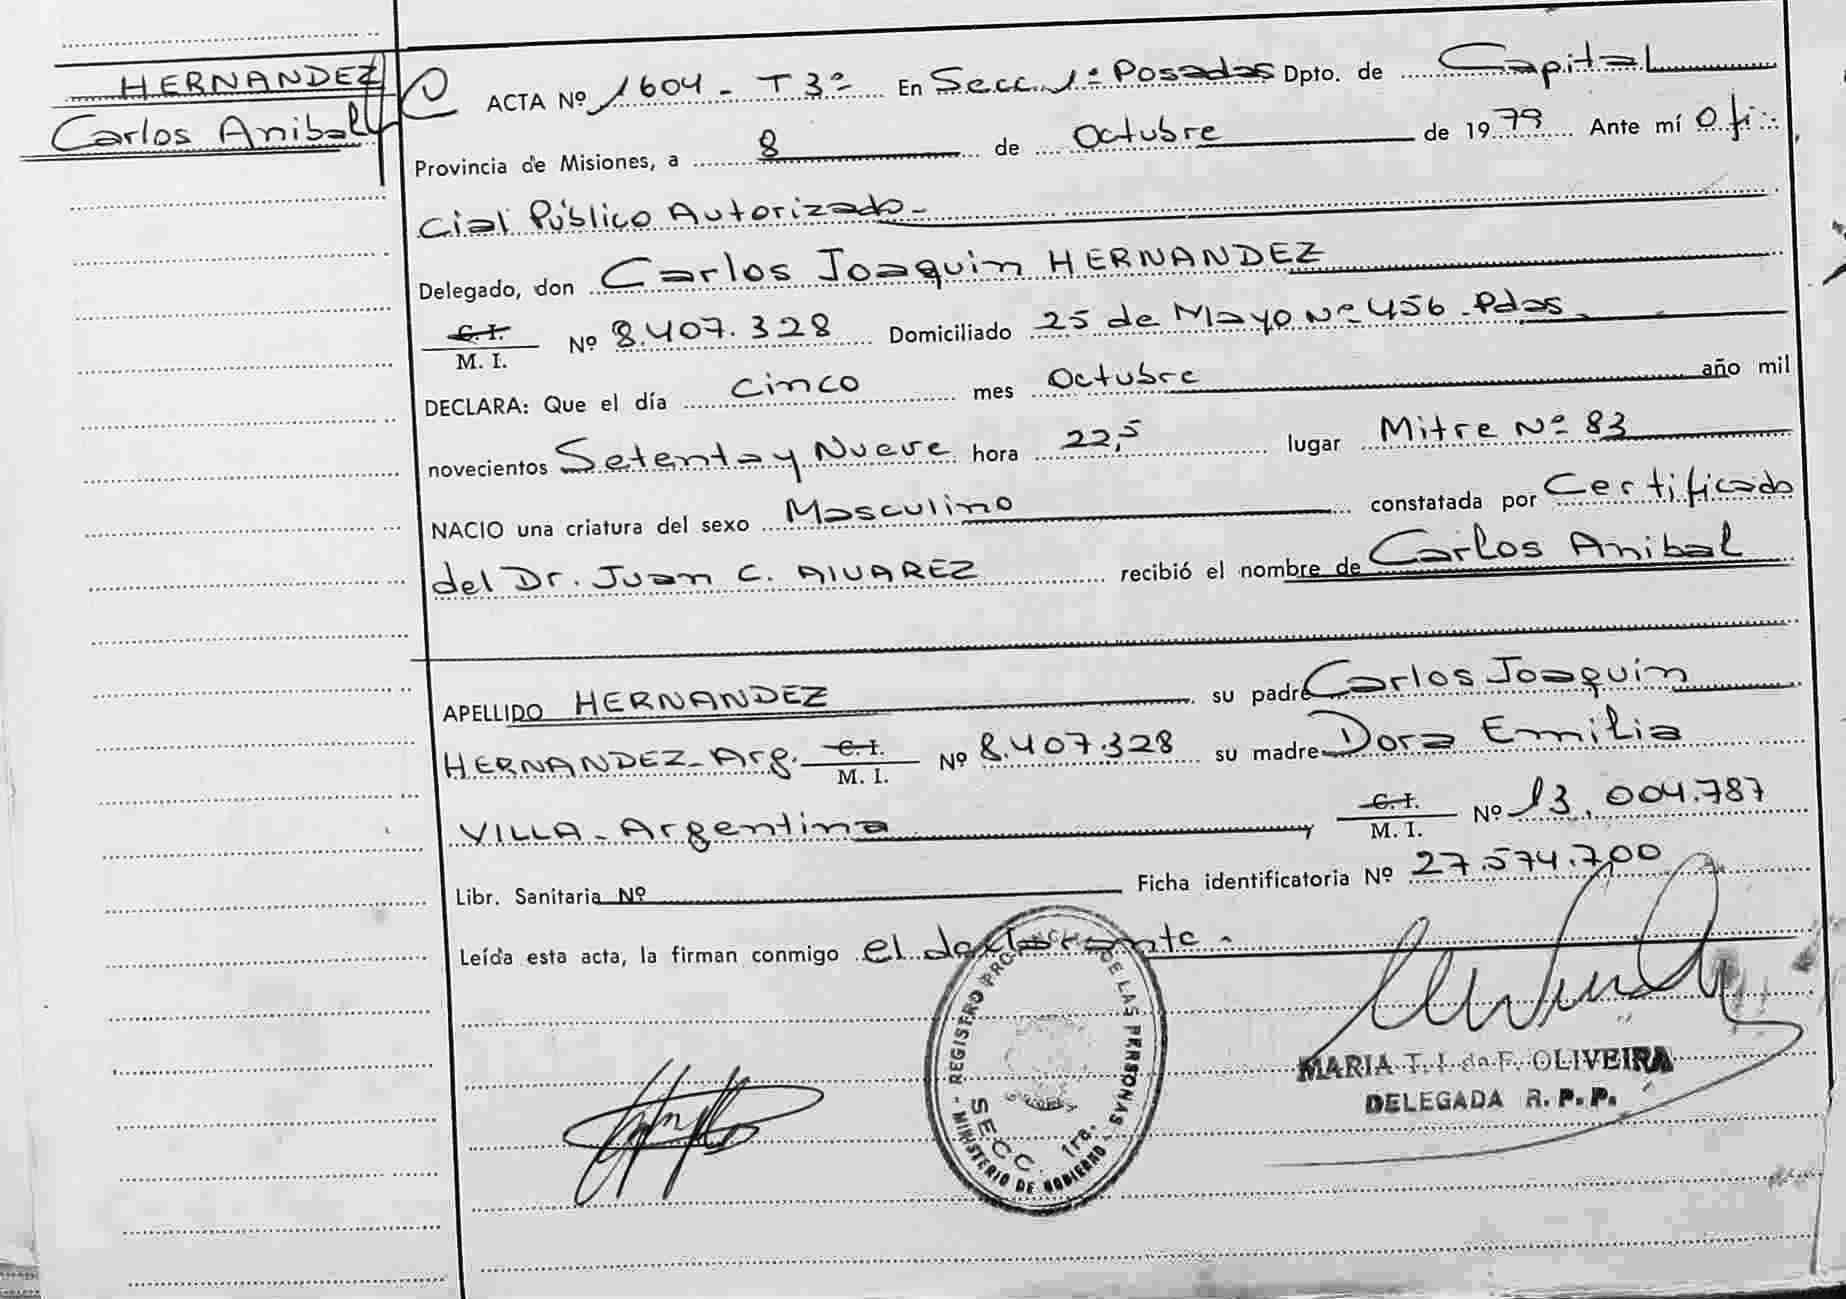 HERNANDEZ
Carlos Anibal
ACTA Nº 1604 - T 3º En Secc. 1ª Posadas Dpto. de Capital
Provincia de Misiones, a 8 de Octubre de 1979 Ante mí Ofi-
cial Público Autorizado-
Delegado, don Carlos Joaquin HERNANDEZ
C.I. M. I. Nº 8.407.328 Domiciliado 25 de Mayo Nº 456 - Pdas.
DECLARA: Que el día Cinco mes Octubre año mil
novecientos Setenta y Nueve hora 22,5 lugar Mitre Nº 83
NACIO una criatura del sexo Masculino constatada por Certificado
del Dr. Juan C. AlVAREZ recibió el nombre de Carlos Anibal
APELLIDO HERNANDEZ su padre Carlos Joaquin
HERNANDEZ - Arg. C.I. M. I. Nº 8.407.328 su madre Dora Emilia
VILLA - Argentina C.I. M. I. Nº 13.004.787
Libr. Sanitaria Nº Ficha identificatoria Nº 27.574.700
Leída esta acta, la firman conmigo el declarante.
REGISTRO PROVINCIAL DE LAS PERSONAS
SECC. 1ra.
- MINISTERIO DE GOBIERNO -
MARIA T. I. de F. OLIVEIRA
DELEGADA R. P. P.